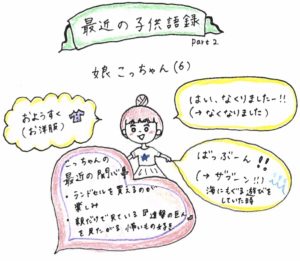 最近の子供語録
part 2
娘 こっちゃん (6)
おようすく
(お洋服)
はい、なくりましたー!!
(→なくなりました)
ばっぶーん!!
(→ザブーン!!)
海にもぐる遊びを
していた時
こっちゃんの
最近の関心事
・ランドセルを買えるのが
楽しみ
・観だけで見ている『進撃の巨人』
を見たがる 怖いもの好き